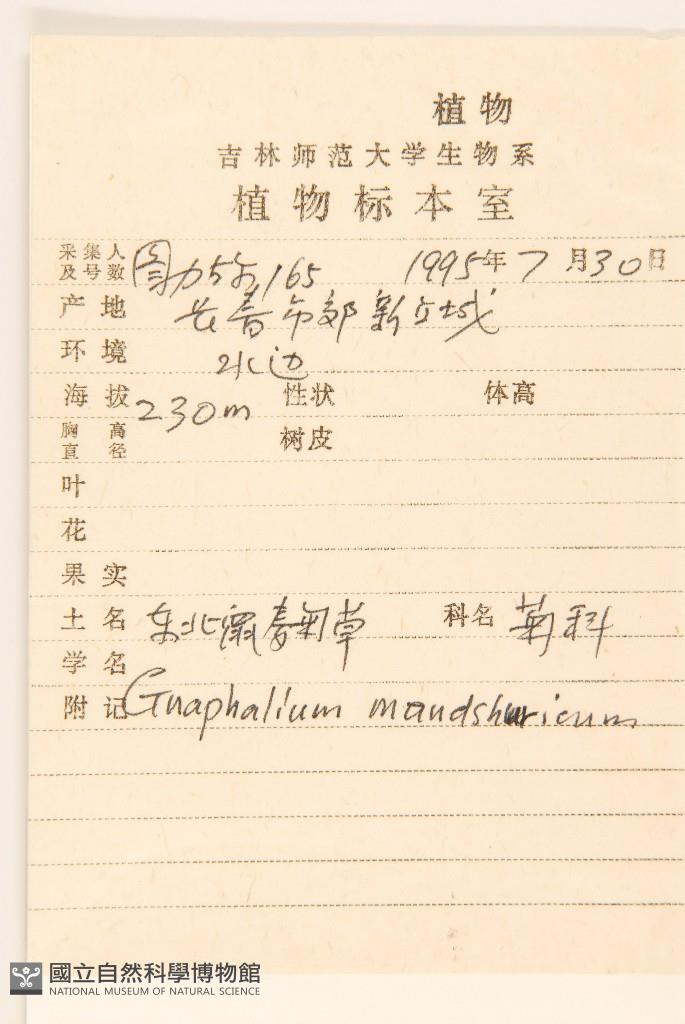 植物
吉林师范大学生物系
植物标本室
采集人及号数 图力古尔 165 1995年7月30日
产地 长春市郊新立城
环境 水边
海拔 230m 性状 体高
胸高直径 树皮
叶
花
果实
土名 东北鼠麴草 科名 菊科
学名
附记 Gnaphalium mandshuricum
國立自然科學博物館
NATIONAL MUSEUM OF NATURAL SCIENCE